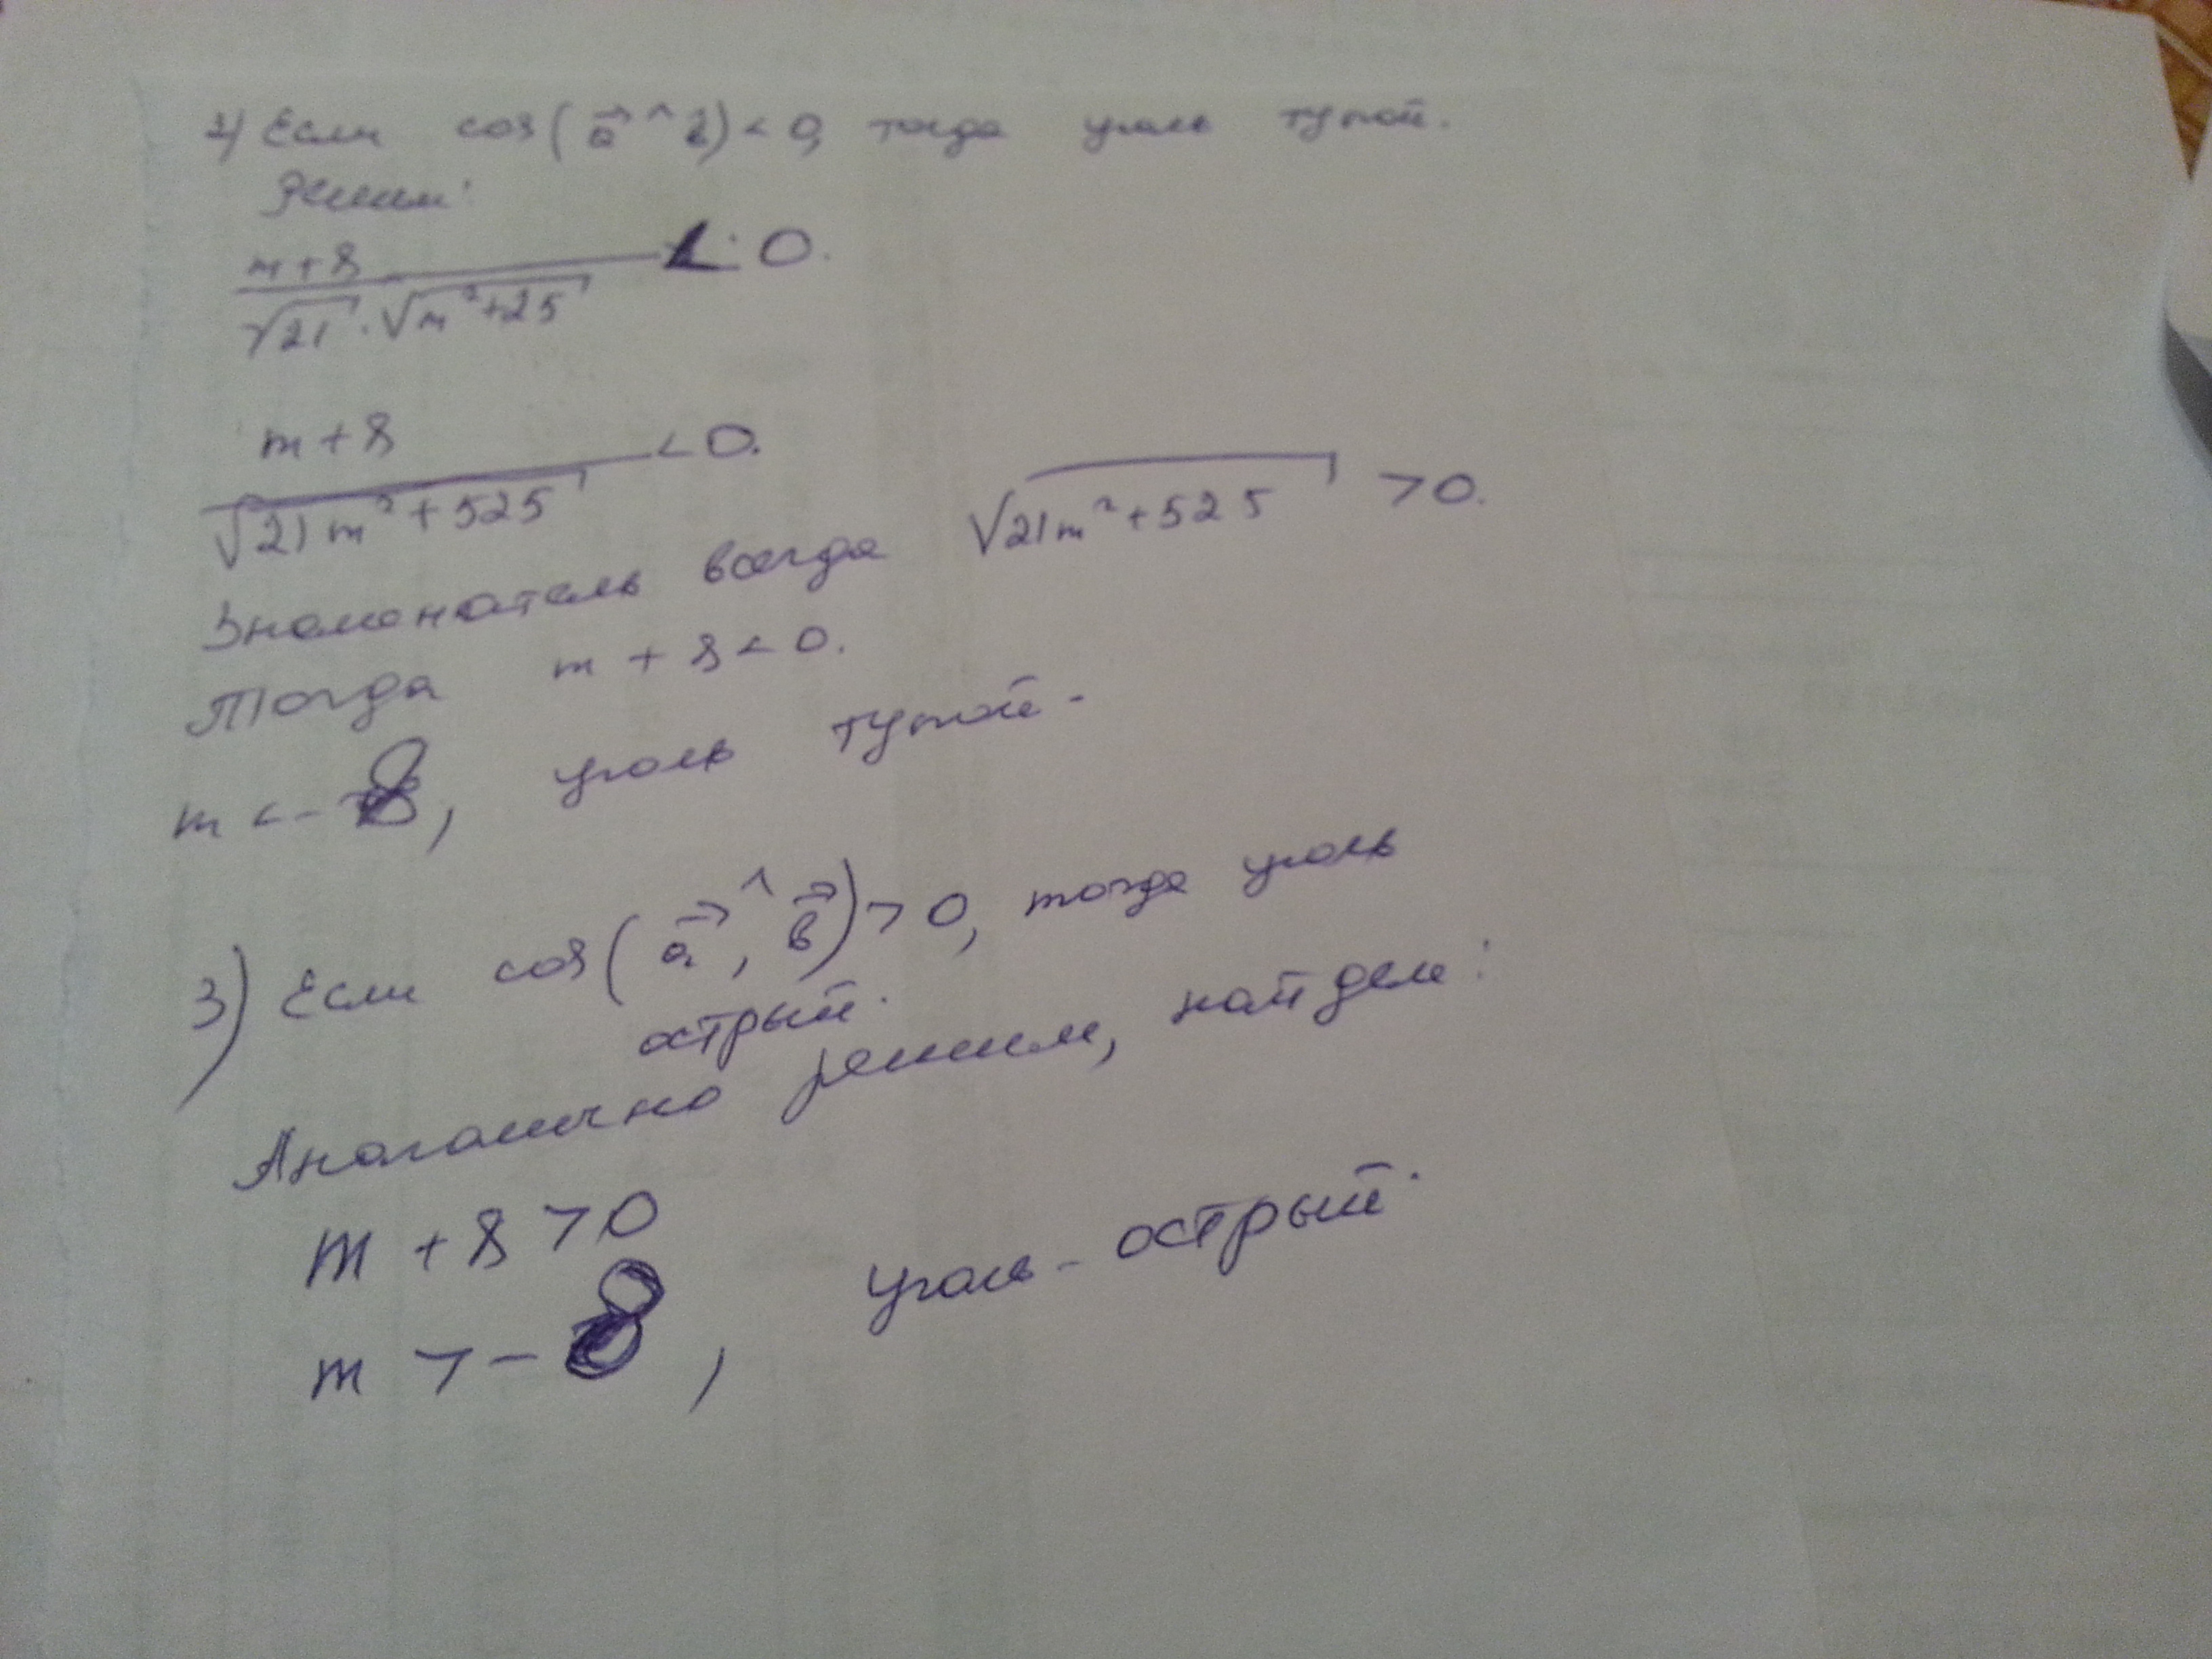 2) Если cos(a ^ b) < 0, тогда уголь тупой.
Решим:
m+8 / √21 · √m²+25 < 0.
m+8 / √21m²+525 < 0.
Знаменатель всегда √21m²+525 > 0.
Тогда m + 8 < 0.
m < -8, уголь тупой.
3) Если cos(a ^, b) > 0, тогда уголь
острый.
Аналогично решим, найдем:
m + 8 > 0
m > -8, уголь - острый.